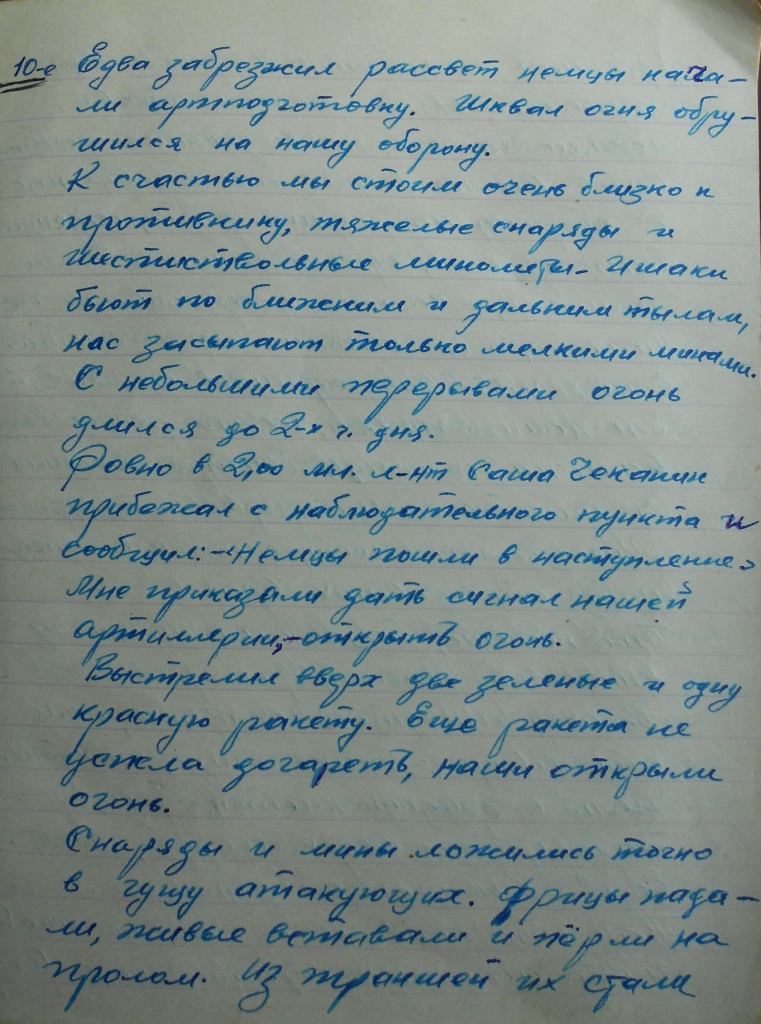 10-е Едва забрезжил рассвет немцы нача-
ли артподготовку. Шквал огня обру-
шился на нашу оборону.
К счастью мы стоим очень близко к
противнику, тяжелые снаряды и
шестиствольные миномёты - Ишаки
бьют по ближним и дальним тылам,
нас засыпают только мелкими минами.
С небольшими перерывами огонь
длился до 2-х ч. дня.
Ровно в 2,00 мл. л-нт Саша Чеканин
прибежал с наблюдательного пункта и
сообщил: - "Немцы пошли в наступление."
Мне приказали дать сигнал нашей
артиллерии, - открыть огонь.
Выстрелил вверх две зеленые и одну
красную ракету. Еще ракета не
успела догареть, наши открыли
огонь.
Снаряды и мины ложились точно
в гущу атакующих. Фрицы пада-
ли, живые вставали и пёрли на
пролом. Из траншей их стали